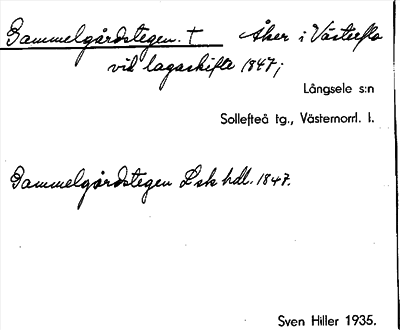 Gammelgårdstegen. † Åker i
vid lagaskifte 1847;
Långsele s:n
Sollefteå tg., Västernorrl. l.
Gammelgårdstegen Lsk hdl. 1847.
Sven Hiller 1935.